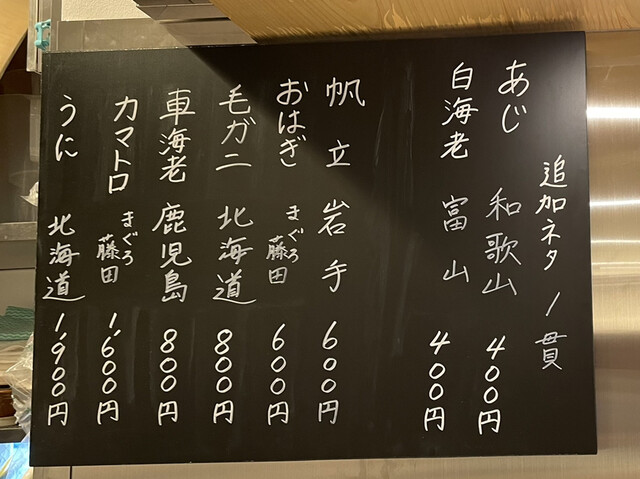 追加ネタ 1貫
あじ 和歌山 400円
白海老 富山 400円
帆立 岩手 600円
おはぎ まぐろ藤田 600円
毛ガニ 北海道 800円
車海老 鹿児島 800円
カマトロ まぐろ藤田 1,600円
うに 北海道 1,900円